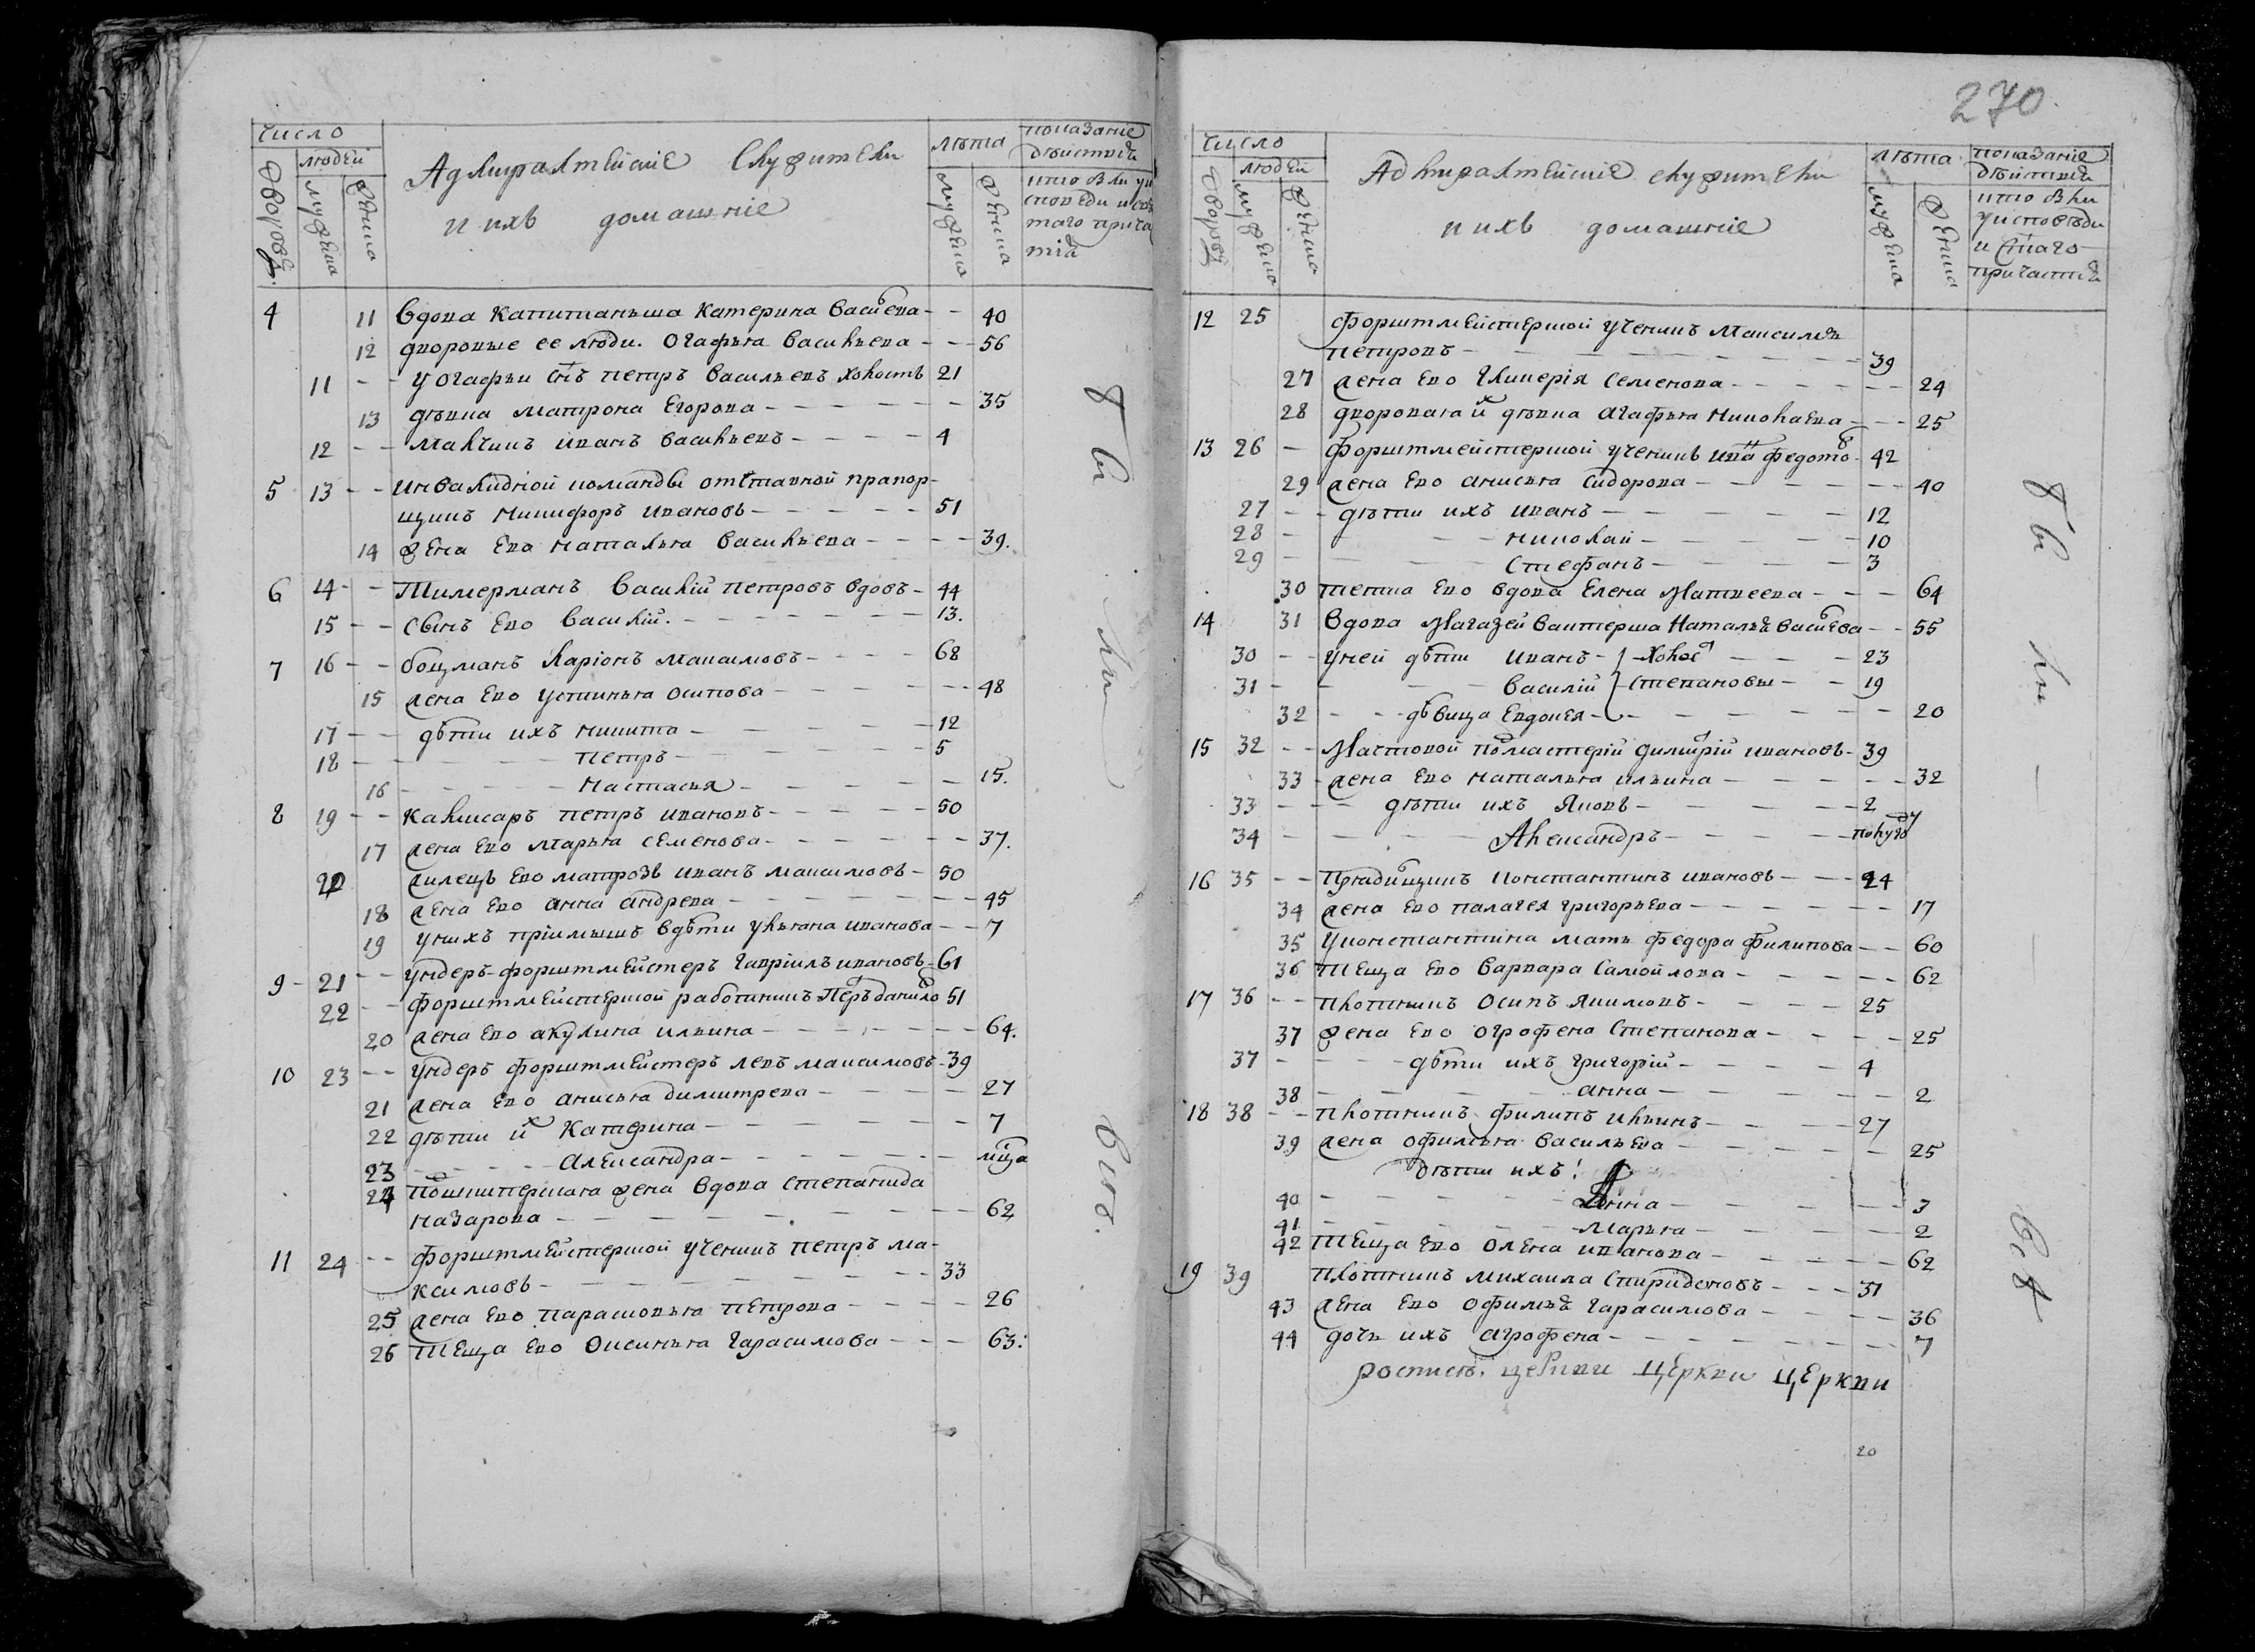 число
людей
дворовъ
мужеска
женска
Адмиралтейские служители
и ихъ домашние
лѣта
мужеска
женска
показание
действия
кто были у и
споведи и свя
таго прича
тия
4 11 вдова капитанша катерина васиева - - 40
12 дворовые ее люди. огафья васильева - - 56
11 - - у огафьи снъ петръ васильевъ холостъ 21
13 дѣвка матрона егорова - - 35
12 - - мальчикъ иванъ васильевъ - - 4
5 13 - - инвалидной команды отставной прапор-
щикъ никифоръ ивановъ - - 51
14 жена ево наталья васильева - - 39.
6 14 - - тимерманъ василий петровъ вдовъ - 44
15 - - сынъ ево василий. - - 13.
7 16 - - боцманъ ларионъ максимовъ - - 68
15 жена ево устинья осипова - - 48
17 - - дѣти ихъ никита - - 12
18 - - петръ - - 5
16 - - настасья - - 15.
8 19 - - камисаръ петръ ивановъ - - 50
17 жена ево марья семенова - - 37.
20 жилецъ ево матрозъ иванъ максимовъ - 50
18 жена ево анна андрева - - 45
19 у нихъ приимышъ вдѣти ульяна иванова - - 7
9 - 21 - - ундеръ-форштмейстеръ гавриилъ ивановъ - 61
22 - - форштмейстерской работникъ петръ данило 51
20 жена ево акулина ильина - - 64.
10 23 - - ундеръ форштмейстеръ левъ максимовъ - 39
21 жена ево анисья димитрева - - 27
22 дѣти их катерина - - 7
23 - - александра - - мца
24 жена вдова степанида
назарова - - 62
11 24 - - форштмейстерской ученикъ петръ ма-
ксимовъ - - 33
25 жена ево парасковья петрова - - 26
26 теща ево оксинья гарасимова - - 63:
270
число
людей
дворовъ
мужеска
женска
Адмиралтейские служители
и ихъ домашние
лѣта
мужеска
женска
показание
действия
кто были
у исповѣди
и стаго
причастия
12 25 форштмейстерской ученикъ максимъ
петровъ - - 39
27 жена ево гликерия семенова - - 24
28 дворовая их дѣвка агафья николаева - - 25
13 26 - форштмейстерской ученикъ иван федотов - 42
29 жена ево анисья сидорова - - 40
27 - - дѣти ихъ иванъ - - 12
28 - - николай - - 10
29 - - стефанъ - - 3
30 тетка ево вдова елена матвеева - - 64
14 31 вдова магазейвахтерша наталья васиева - - 55
30 - - у ней дѣти иванъ - } холос - - 23
31 - - василий } степановы - - 19
32 - - дѣвица евдокея - - 20
15 32 - - мачтовой помастерий димитрий ивановъ - 39
33 - жена ево наталья ильина - - 32
33 - - дѣти ихъ яковъ - - 2
34 - - Александръ - - полугоду
16 35 - - прядищикъ константинъ ивановъ - - 24
34 жена ево палагея григорьева - - 17
35 у константина мать федора филипова - - 60
36 теща ево варвара самойлова - - 62
17 36 - - плотникъ осипъ якимовъ - - 25
37 жена ево огрофена степанова - - 25
37 - - дѣти ихъ григорий - - 4
38 - - анна - - 2
18 38 - - плотникъ филипъ ильинъ - - 27
39 жена офимья васильева - - 25
дѣти ихъ:
40 - - Анна - - 3
41 - - марья - - 2
42 теща ево олена иванова - - 62
19 39 плотникъ михаила спиридоновъ - - 31
43 жена ево офимья гарасимова - - 36
44 дочь ихъ агрофена - - 7
роспись. церкви церкви церкви
20